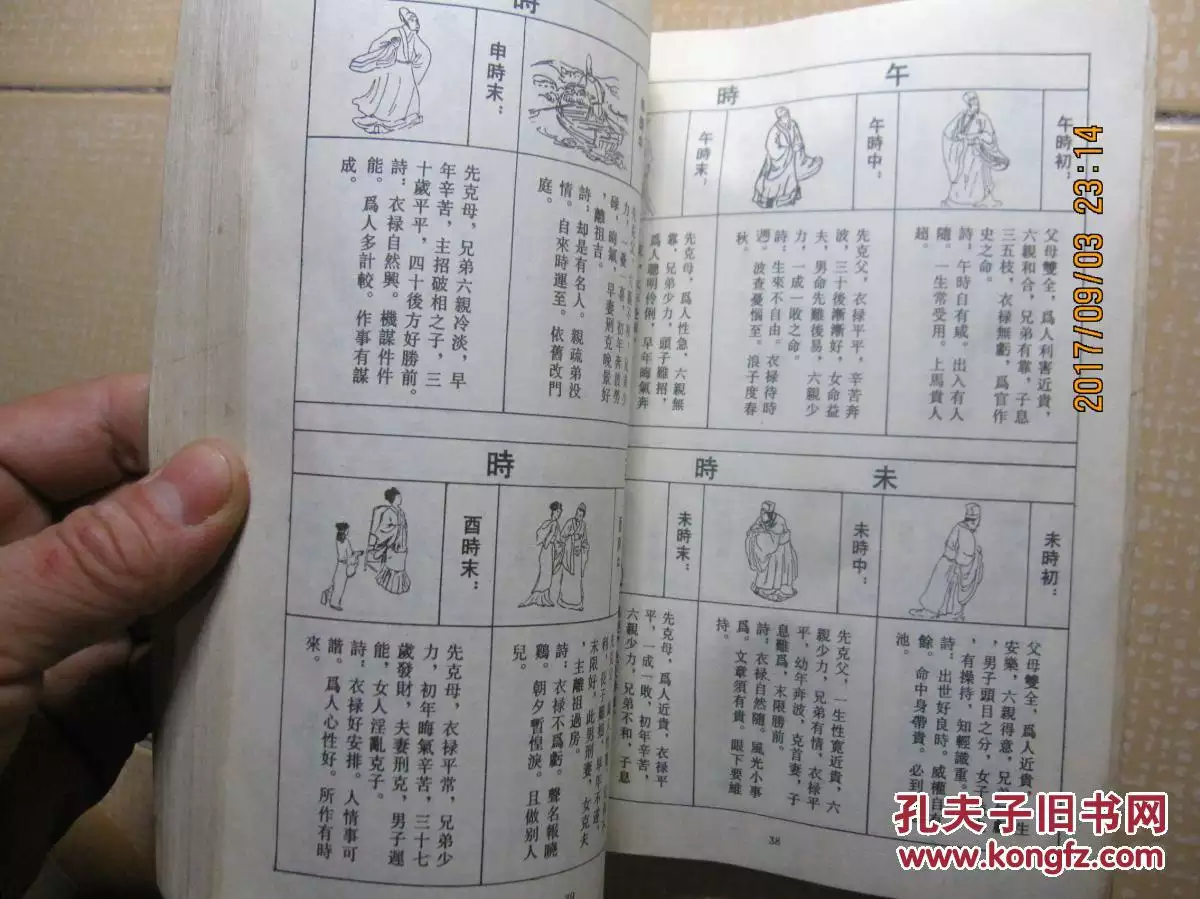 午
時
午時初：
父母雙全，爲人利害近貴，
六親和合，兄弟有靠，子息
三五枝，衣禄無虧，爲官作
史之命。
詩：午時自有咸。出入有人
隨。一生常受用。上馬貴人
趨。
午時中：
先克父，衣禄平平，辛苦奔
波，三十後漸漸好，女命益
夫，男命先難後易，六親少
力，一成一敗之命。
詩：生來不自由。衣禄待時
週。波查憂惱至。浪子度春
秋。
午時末：
先克母，爲人性急，六親無
靠，兄弟少力，頭子難招，
爲人聰明伶俐，早年晦氣奔
未
時
未時初：
父母雙全，爲人近貴，
安樂，六親得意，兄弟
，男子頭目之分，女子
，有操持，知輕識重。
詩：出世好良時。威權自
餘。命中身帶貴。必到
池。
未時中：
先克父，一生性寬近貴，六
親少力，兄弟有情，衣禄平
平，幼年奔波，克首妻，子
息難爲，末限勝前。
詩：衣禄自然隨。風光小事
爲。文章須有貴。眼下要維
持。
未時末：
先克母，爲人近貴，衣禄平
平，一成一敗，初年辛苦，
六親少力，兄弟不和，子息
38
時
力，一憂一喜，初年奔波勞
碌，晦氣，早妻刑克晚景好
，離祖吉。
詩：却是有名人。親疏弟没
情。自來時運至。依舊改門
庭。
申時末：
先克母，兄弟六親冷淡，早
年辛苦，主招破相之子，三
十歲平平，四十後方好勝前。
詩：衣禄自然興。機謀件件
能。爲人多計較。作事有謀
成。
時
末限好，此男刑妻，女克夫
，主離祖過房。
詩：衣禄不爲虧。聲名報曉
鷄。朝夕暫惶淚。且做别人
兒。
酉時末：
先克母，衣禄平常，兄弟少
力，初年晦氣辛苦，三十七
歲發財，夫妻刑克，男子遲
能，女人淫亂克子。
詩：衣禄好安排。人情事可
諧。爲人心性好。所作有時
來。
2017/09/03 23:14
孔夫子旧书网
www.kongfz.com